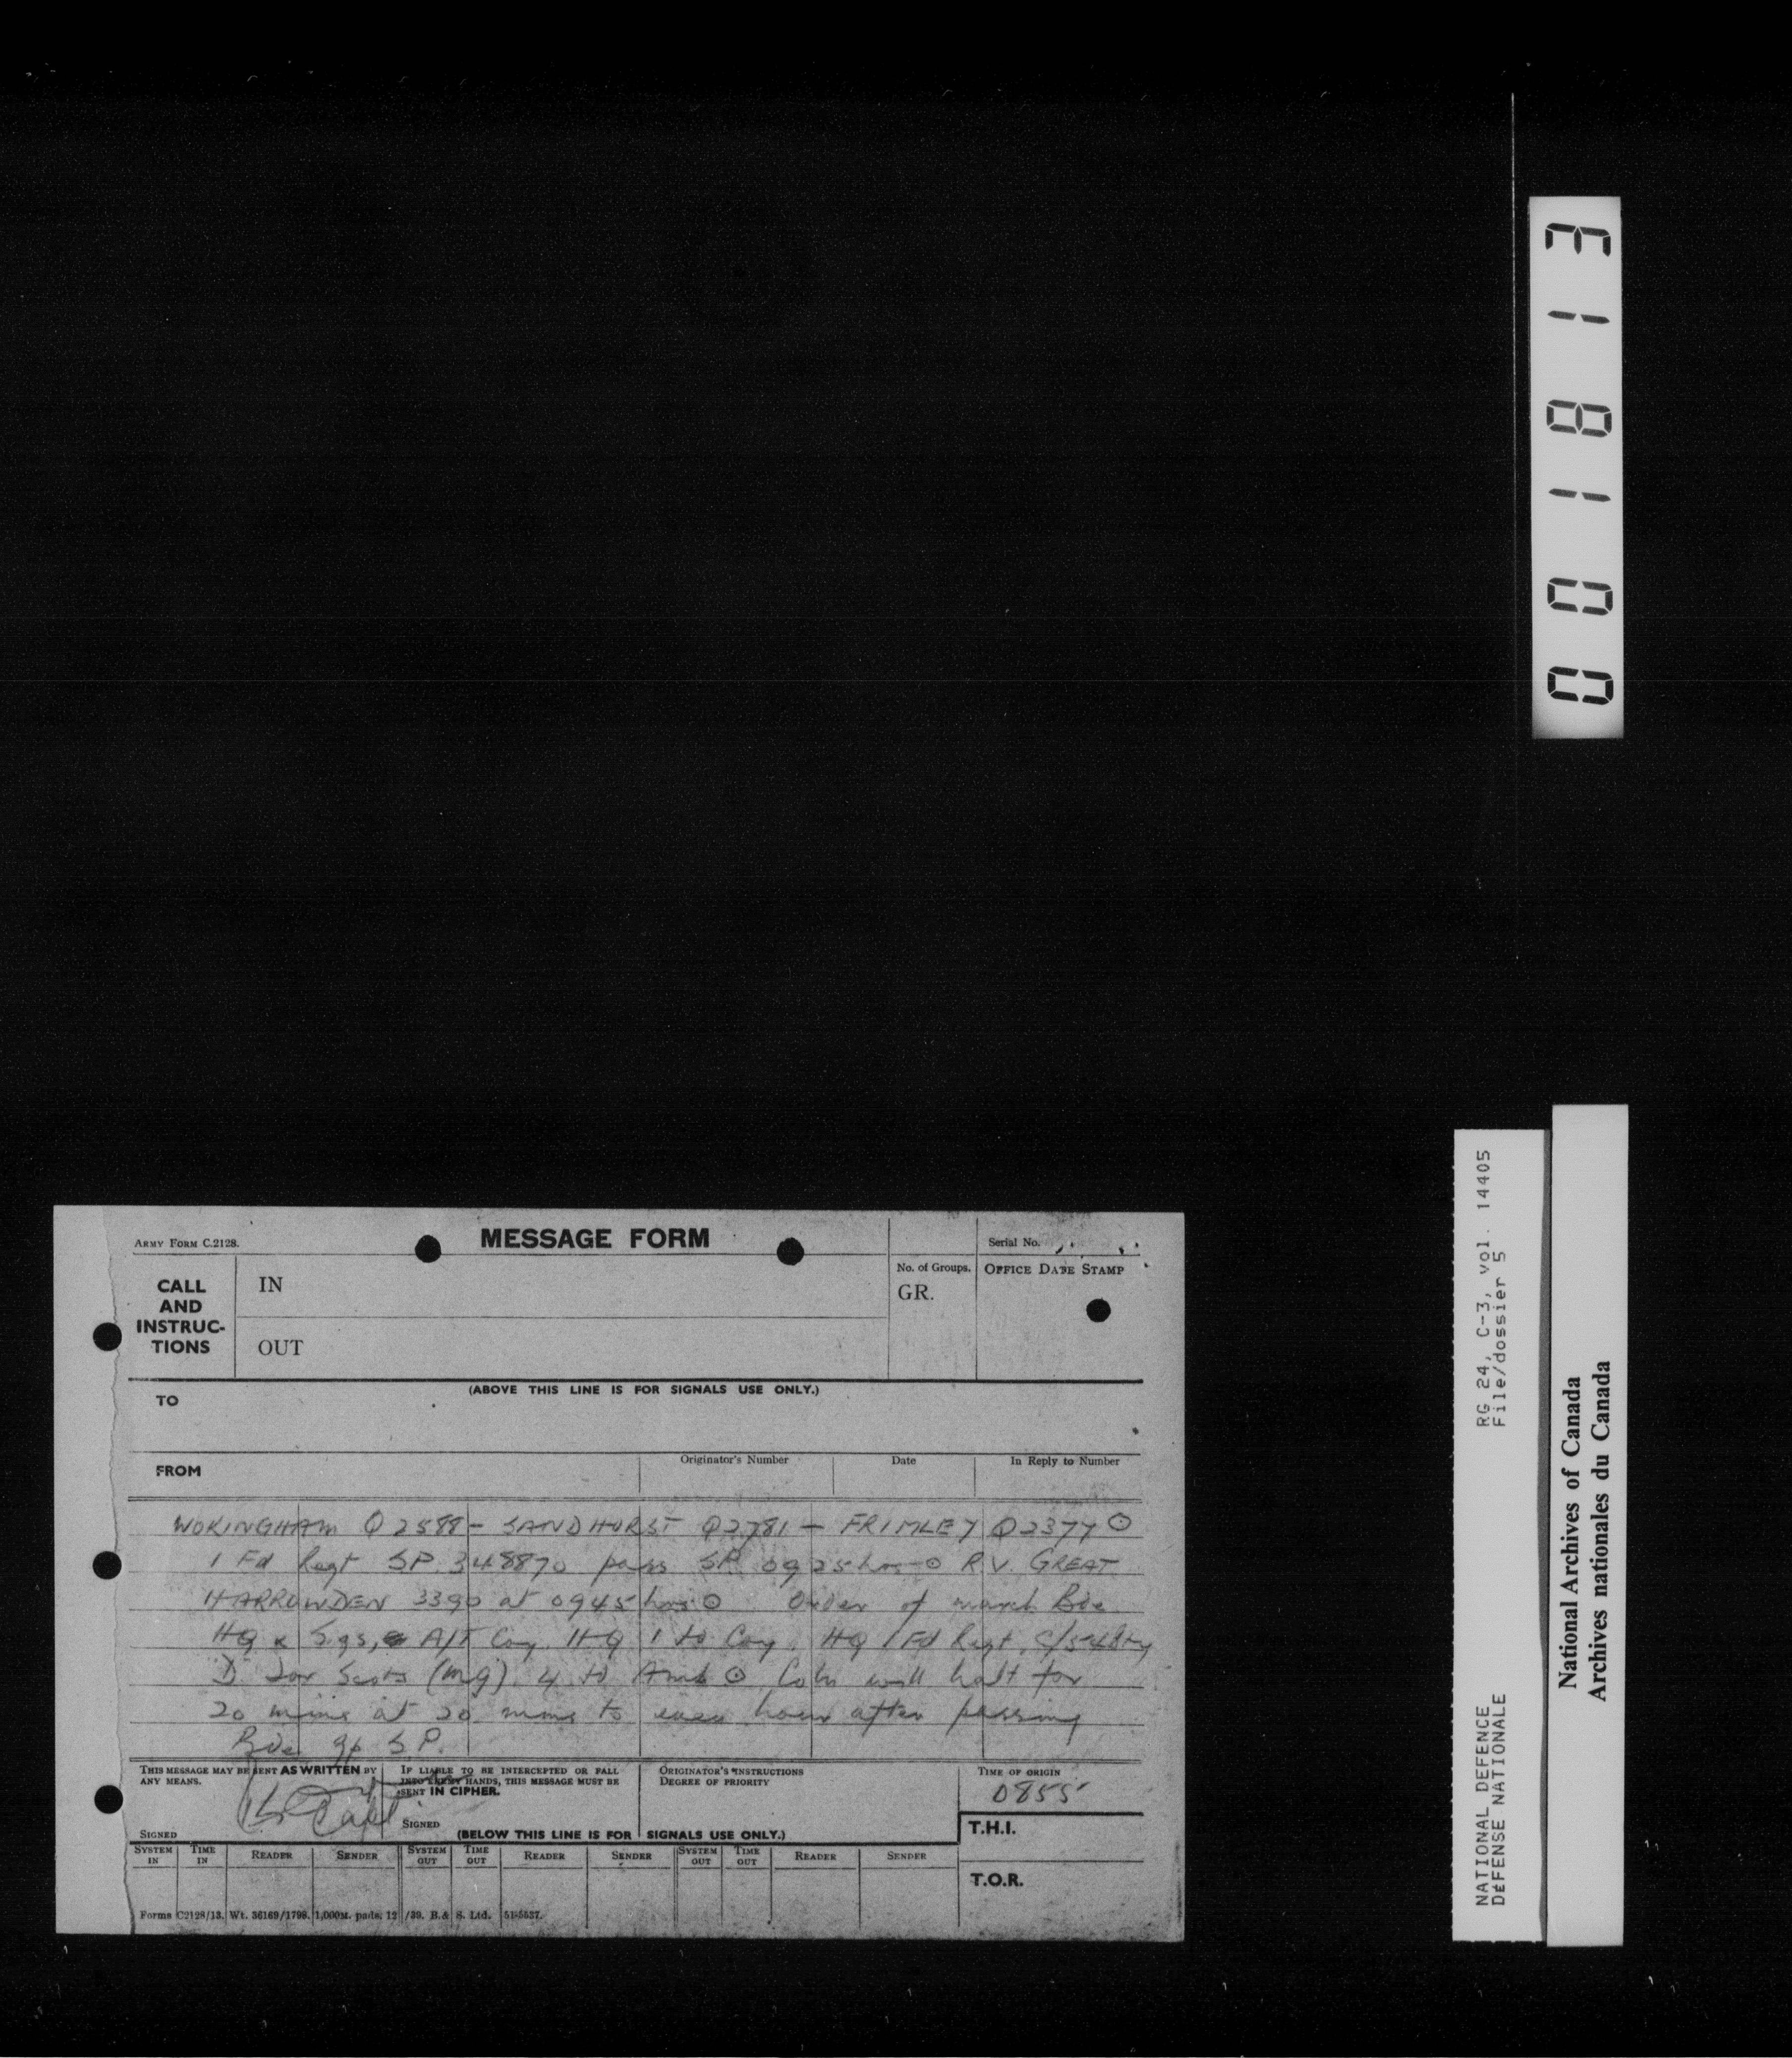 ARMY FORM C.2128.
MESSAGE FORM
Serial No.
CALL AND INSTRUC-TIONS
IN
OUT
No. of Groups.
GR.
OFFICE DATE STAMP
(ABOVE THIS LINE IS FOR SIGNALS USE ONLY.)
TO
FROM
Originator's Number
Date
In Reply to Number
WOKINGHAM Q 2588 - SANDHURST Q2781 - FRIMLEY Q2377 ⊙
1 Fd Regt SP 348870 pass SP 0925 hrs ⊙ R.V. GREAT
HARROWDEN 3390 at 0945 hrs ⊙ Order of march Bde
HQ & Sigs, A/T Coy. HQ 1 Fd Coy. HQ 1 Fd Regt, C/54 Bty
D Tor Scots (mg). 4 Fd Amb ⊙ Coln will halt for
20 mins at 20 mins to even hour after passing
Bde gp S.P.
THIS MESSAGE MAY BE SENT AS WRITTEN BY ANY MEANS.
IF LIABLE TO BE INTERCEPTED OR FALL INTO ENEMY HANDS, THIS MESSAGE MUST BE SENT IN CIPHER.
ORIGINATOR'S INSTRUCTIONS
DEGREE OF PRIORITY
TIME OF ORIGIN
0855
Capt
SIGNED
SIGNED
(BELOW THIS LINE IS FOR SIGNALS USE ONLY.)
T.H.I.
SYSTEM IN
TIME IN
READER
SENDER
SYSTEM OUT
TIME OUT
READER
SENDER
SYSTEM OUT
TIME OUT
READER
SENDER
T.O.R.
Forms C2128/13. Wt. 36169/1798. 1,000M. pads. 12/39. B.& S. Ltd. 51-5537.
001813
RG 24, C-3, vol. 14405
File/dossier 5
NATIONAL DEFENCE
DÉFENSE NATIONALE
National Archives of Canada
Archives nationales du Canada